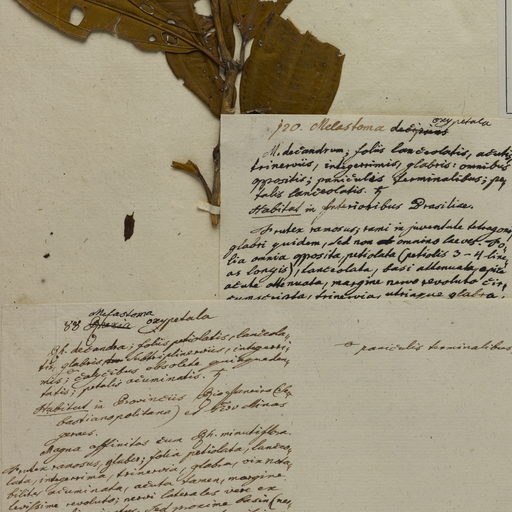 120. Melastoma decipiens oxypetala
M. decandrum; foliis lanceolatis, acutis,
trinerviis, integerrimis, glabris: omnibus
oppositis; paniculis terminalibus; pe-
talis lanceolatis. ♄
Habitat in Interioribus Brasiliæ.
Frutex ramosus; rami in juventute tetragoni,
glabri quidem, sed non omnino laeves. Fo-
lia omnia opposita, petiolata (petiolis 3-4 line-
as longis), lanceolata, basi attenuata, apice
acute attenuata, margine nervo revoluto cir-
cumscripta, trinervia utrinque glabra
Melastoma
88 oxypetala
Rh. decandra; foliis petiolatis, lanceola-
tis, glabris, subtriplinerviis, integerri-
mis; calycibus obsolete quinqueden-
tatis; petalis acuminatis. ♄
Habitat in Provinciis Rio Janeiro (Se-
bastianopolitano) et Minas
geraes.
Magna affinitas cum Rh. minutiflora.
Frutex ramosus, glaber; folia petiolata, lanceo-
lata, integerrima, trinervia, glabra,
acuminata, acuta tamen, margine
levissime revoluto; nervi laterales vere ex
sed proxime basin (ne-
paniculis terminalibus,